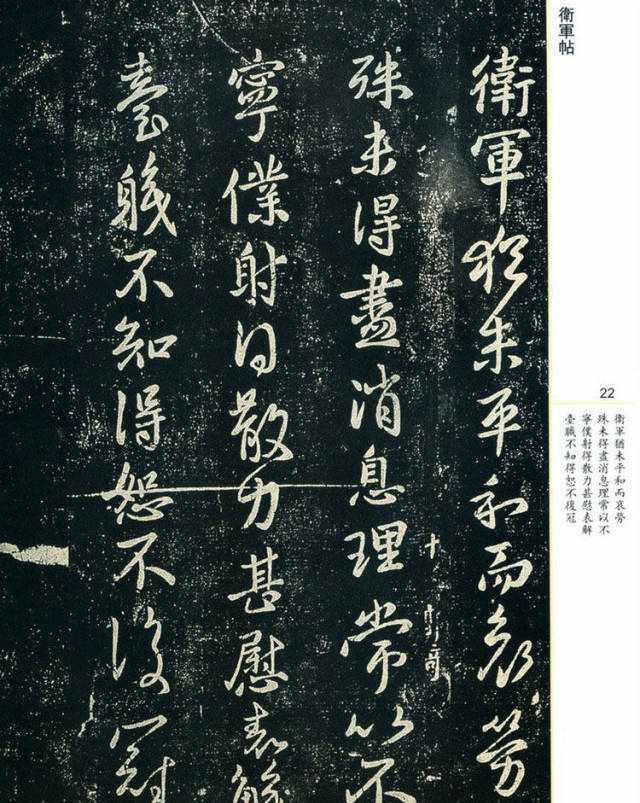 衛軍帖
22
衛軍猶未平和而哀勞
殊未得盡消息理常以不
寧僕射得散力甚慰表解
臺職不知得恕不復冠
衛軍猶未平和而哀勞
殊未得盡消息理常以不
寧僕射得散力甚慰表解
臺職不知得恕不復冠